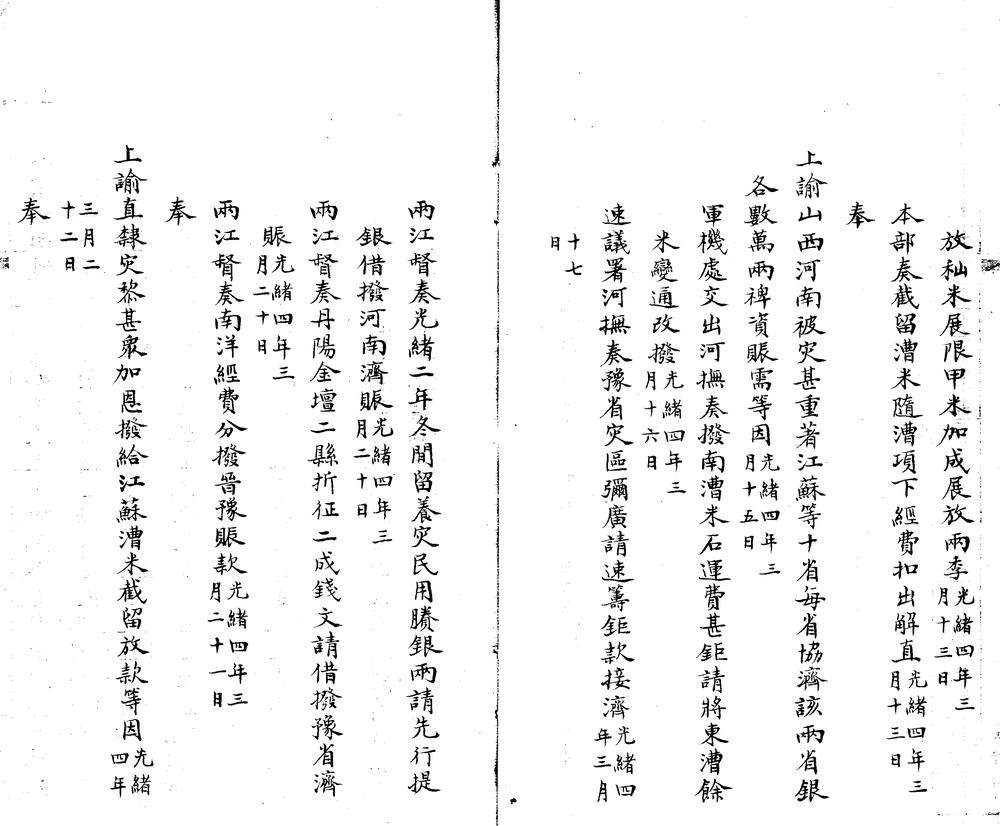 放秈米展限甲米加成展放兩季光緒四年三月十三日
本部奏截留漕米隨漕項下經費扣出解直光緒四年三月十三日
奉
上諭山西河南被灾甚重著江蘇等十省每省協濟該兩省銀
各數萬兩裨資賑需等因光緒四年三月十五日
軍機處交出河撫奏撥南漕米石運費甚鉅請將東漕餘
米變通改撥光緒四年三月十六日
速議署河撫奏豫省灾區彌廣請速籌鉅款接濟光緒四年三月
十七日
兩江督奏光緒二年冬間留養灾民用賸銀兩請先行提
銀借撥河南濟賑光緒四年三月二十日
兩江督奏丹陽金壇二縣折征二成錢文請借撥豫省濟
賑光緒四年三月二十日
兩江督奏南洋經費分撥晉豫賑款光緒四年三月二十一日
奉
上諭直隸灾黎甚衆加恩撥給江蘇漕米截留放款等因光緒四年
三月二十二日
奉